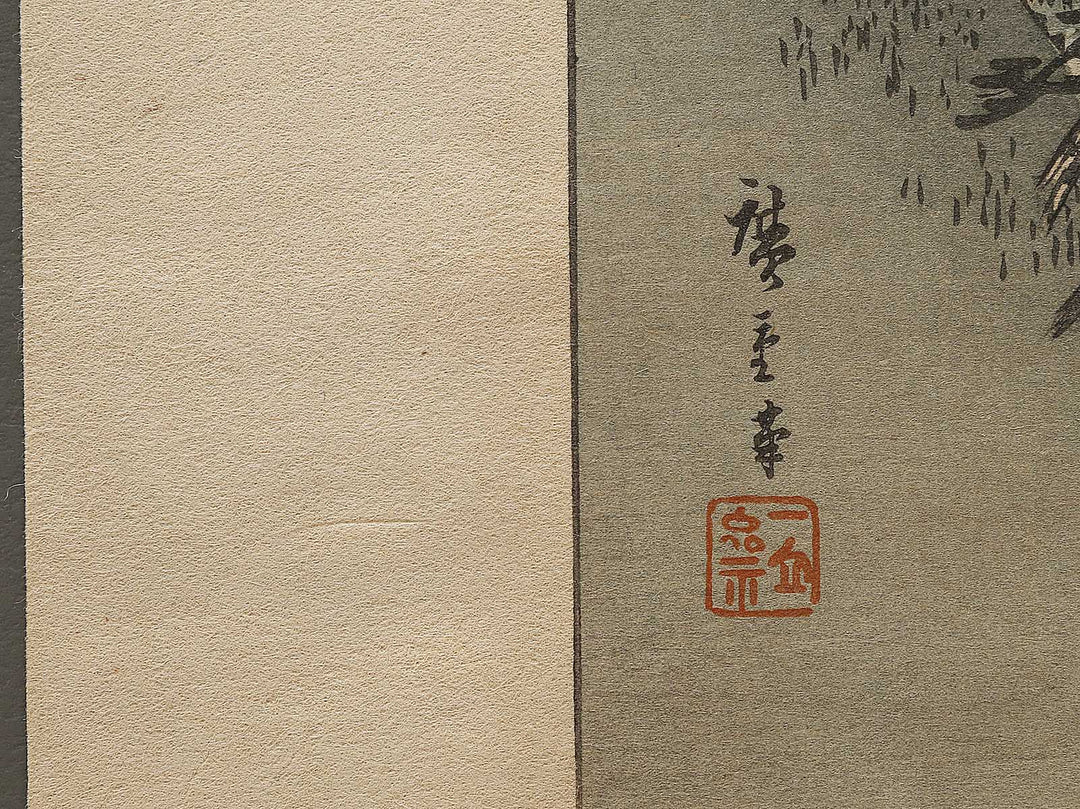 廣重筆
一立齋